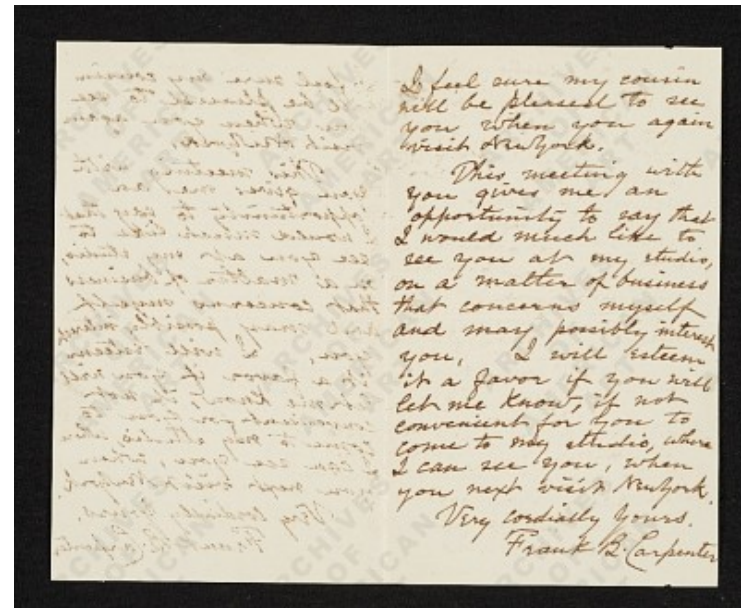 I feel sure my cousin
will be pleased to see
you when you again
visit New York.
This meeting with
you gives me an
opportunity to say that
I would much like to
see you at my studio,
on a matter of business
that concerns myself
and may possibly interest
you. I will esteem
it a favor if you will
let me know, if not
convenient for you to
come to my studio, where
I can see you, when
you next visit New York.
Very cordially yours.
Frank B. Carpenter
ARCHIVES
OF
AMERICAN
ART